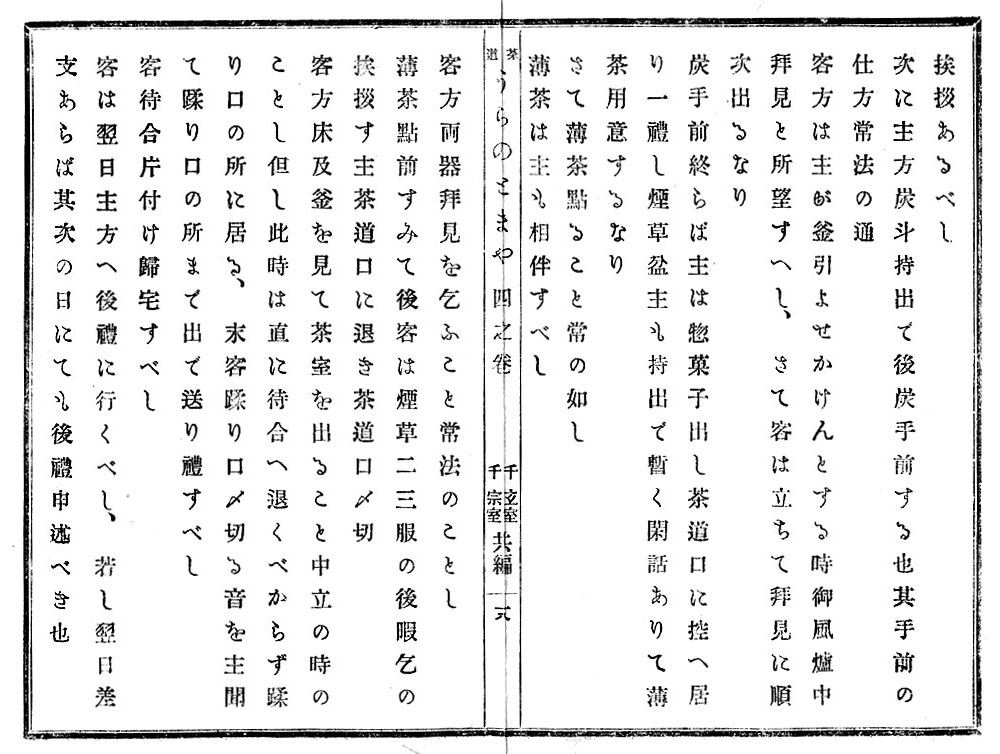 挨拶あるべし
次に主方炭斗持出で後炭手前する也其手前の
仕方常法の通
客方は主が釜引よせかけんとする時御風爐中
拜見と所望すへし、さて客は立ちて拜見に順
次出るなり
炭手前終らば主は惣菓子出し茶道口に控へ居
り一禮し煙草盆主も持出で暫く閑話ありて薄
茶用意するなり
さて薄茶點ること常の如し
薄茶は主も相伴すべし
茶道
うらのとまや 四之卷
千玄室
千宗室
共編
客方両器拜見を乞ふこと常法のことし
薄茶點前すみて後客は煙草二三服の後暇乞の
挨拶す主茶道口に退き茶道口〆切
客方床及釜を見て茶室を出ること中立の時の
ことし但し此時は直に待合へ退くべからず蹂
り口の所に居る、末客蹂り口〆切る音を主聞
て蹂り口の所まで出で送り禮すべし
客待合片付け歸宅すべし
客は翌日主方へ後禮に行くべし、若し翌日差
支あらば其次の日にても後禮申述べき也